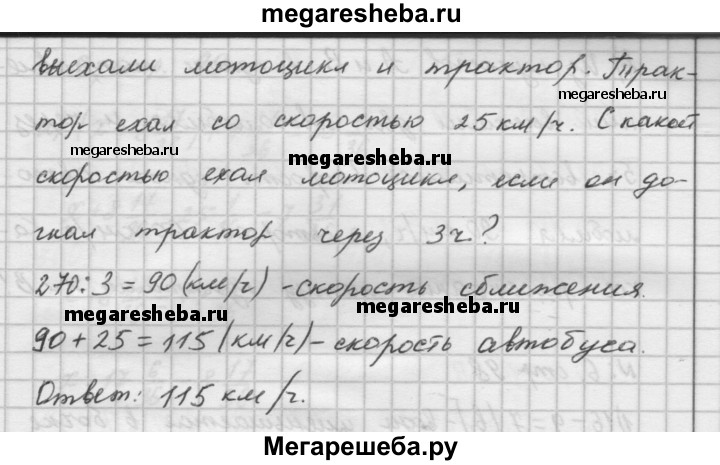 megaresheba.ru
выехали мотоцикл и трактор. Трак-
megaresheba.ru
тор ехал со скоростью 25 км/ч. С какой
megaresheba.ru
megaresheba.ru
скоростью ехал мотоцикл, если он до-
гнал трактор через 3 ч.?
270:3=90(км/ч) -скорость сближения.
megaresheba.ru
megaresheba.ru
90+25=115(км/ч)-скорость автобуса.
Ответ: 115 км/ч.
Мегарешеба.ру